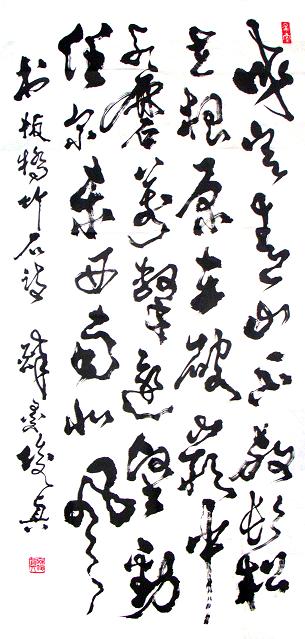 咬定青山不放鬆
立根原在破巖中
千磨萬擊還堅勁
任尔東西南北風
板橋竹石詩